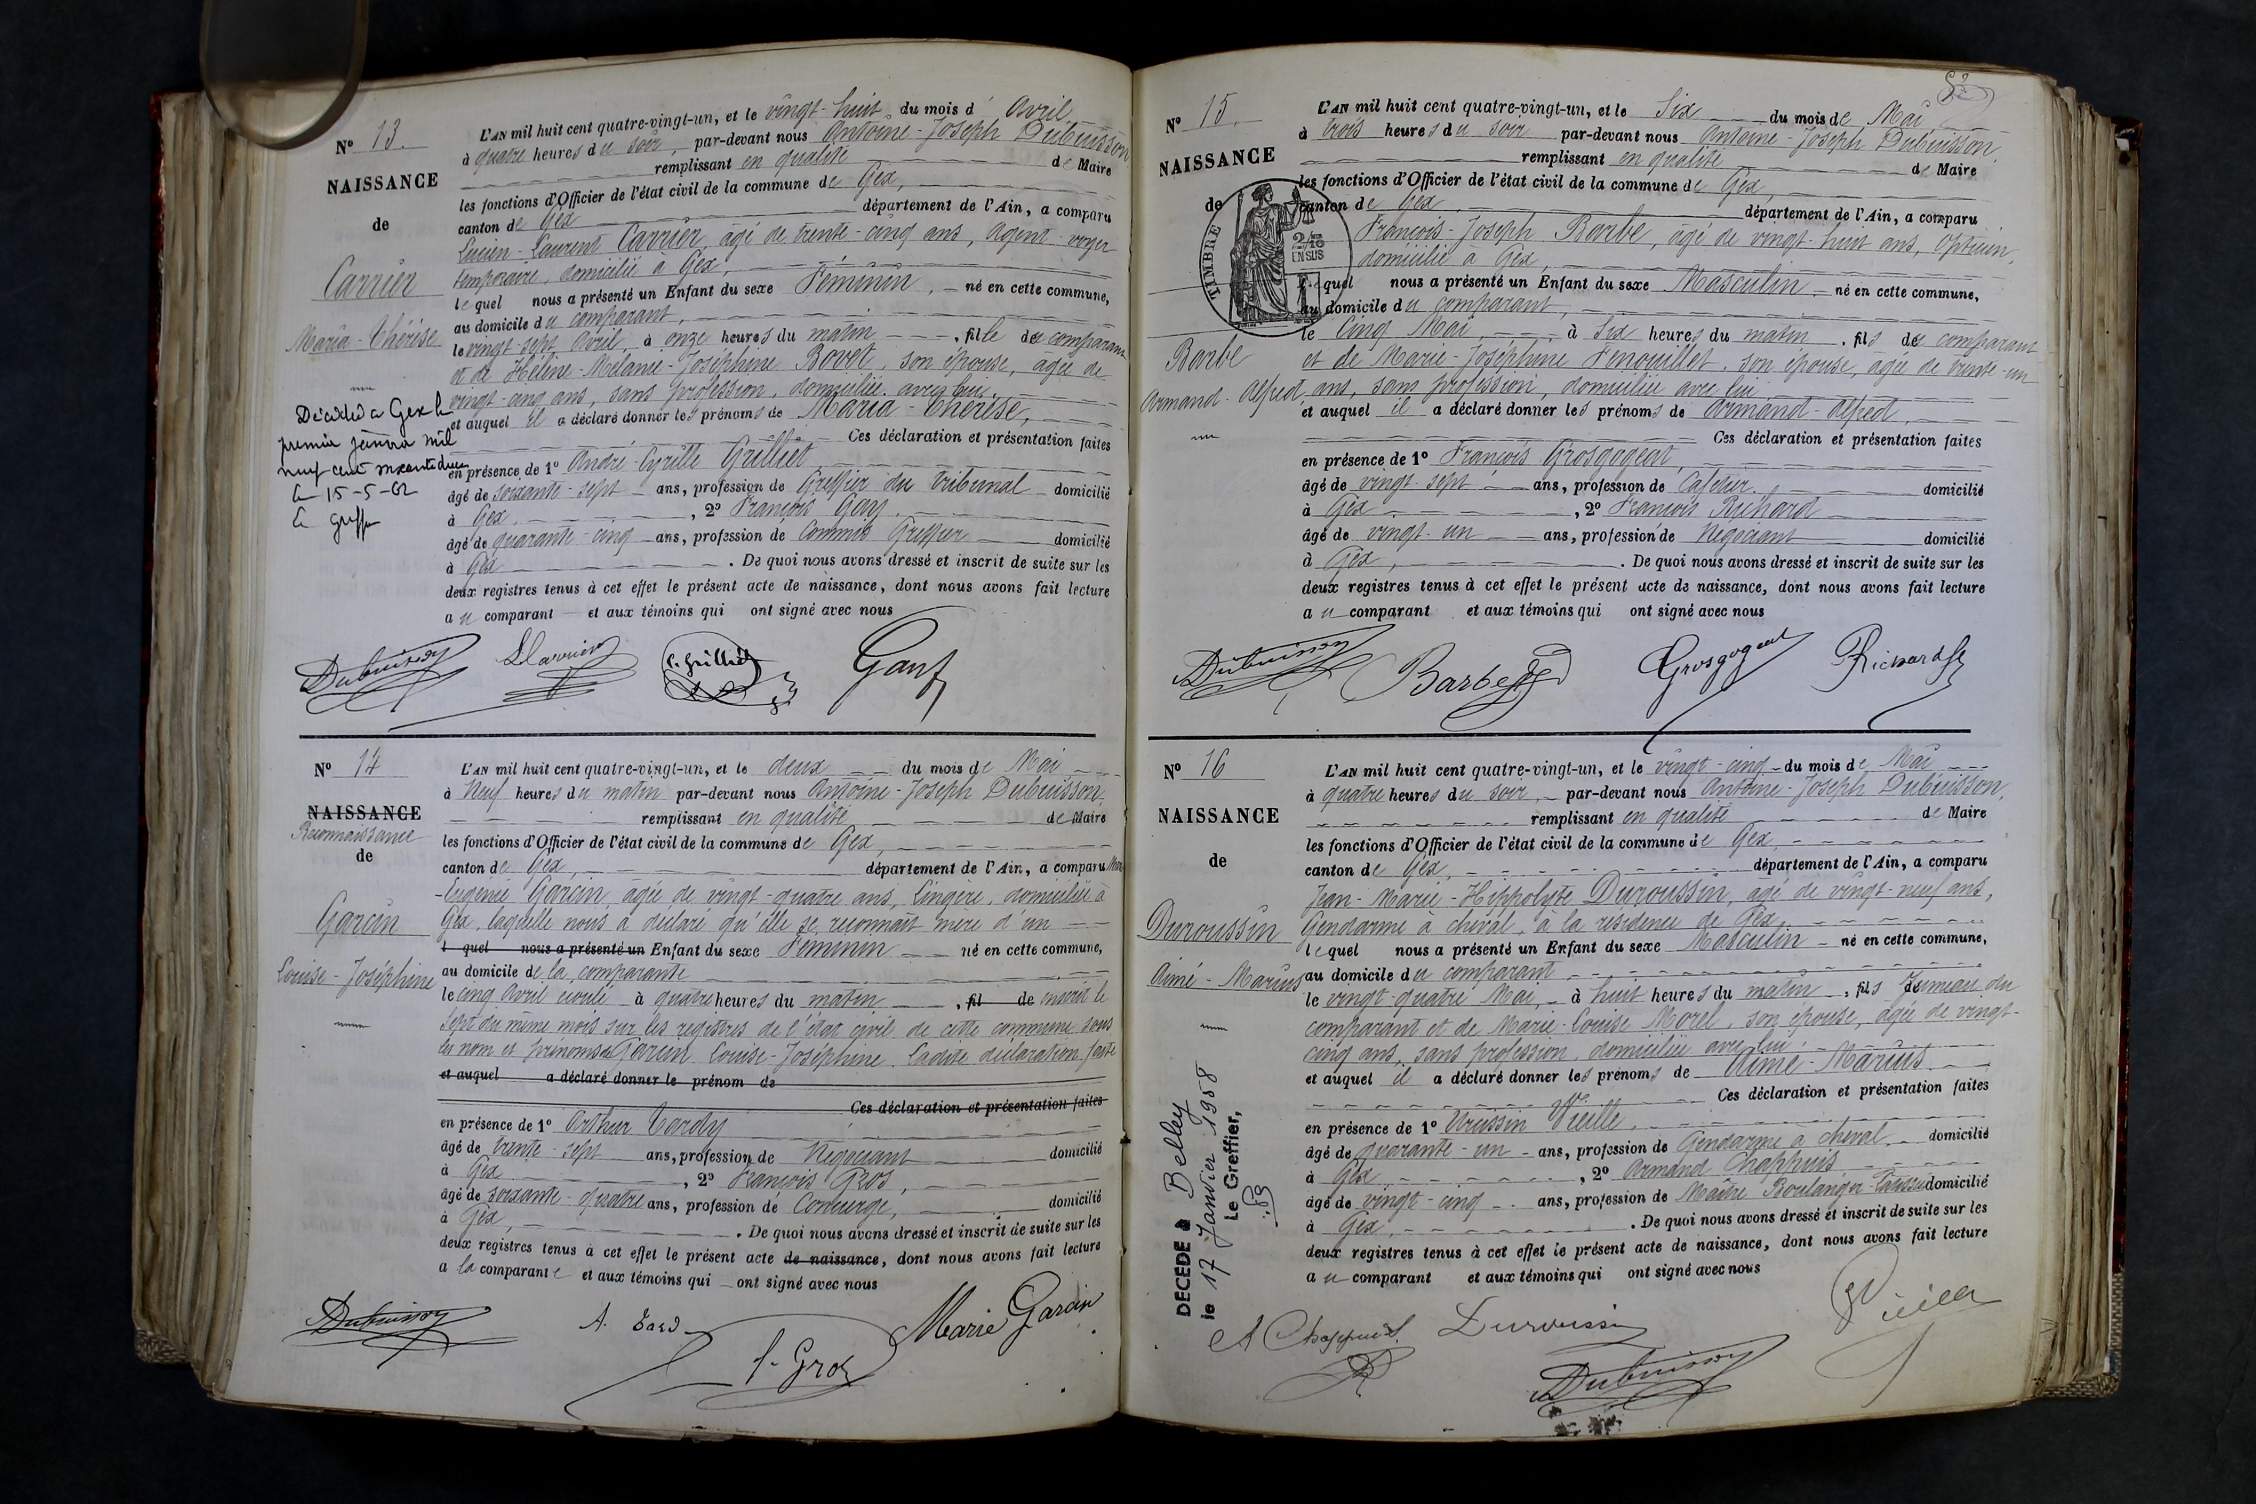 N° 13.
NAISSANCE
de
Carrier
Maria-Thérèse
Décédée à Gex le
premier janvier mil
neuf cent soixante deux
Le 15-5-62
Le greffier
L'AN mil huit cent quatre-vingt-un, et le vingt-huit du mois d'Avril
à quatre heures du soir, par-devant nous Antoine-Joseph Dubuisson
remplissant en qualité de Maire
les fonctions d'Officier de l'état civil de la commune de Gex,
canton de Gex département de l'Ain, a comparu
Lucien-Laurent Carrier, âgé de trente-cinq ans, Agent-voyer
temporaire, domicilié à Gex,
lequel nous a présenté un Enfant du sexe Féminin, né en cette commune,
au domicile du comparant,
le vingt-sept Avril, à onze heures du matin, fille du comparant
et de Hélène-Mélanie-Joséphine Bovet, son épouse, âgée de
vingt-cinq ans, sans profession, domiciliée avec lui,
et auquel il a déclaré donner les prénoms de Maria-Thérèse,
Ces déclaration et présentation faites
en présence de 1° André-Cyrille Grilliet
âgé de soixante-sept ans, profession de Greffier du Tribunal domicilié
à Gex, 2° François Gay,
âgé de quarante-cinq ans, profession de Commis Greffier domicilié
à Gex. De quoi nous avons dressé et inscrit de suite sur les
deux registres tenus à cet effet le présent acte de naissance, dont nous avons fait lecture
au comparant et aux témoins qui ont signé avec nous
Dubuisson LCarrier C. Grilliet Gay f
N° 14
NAISSANCE
Reconnaissance
de
Garcin
Louise-Joséphine
L'AN mil huit cent quatre-vingt-un, et le deux du mois de Mai
à Neuf heures du matin par-devant nous Antoine-Joseph Dubuisson,
remplissant en qualité de Maire
les fonctions d'Officier de l'état civil de la commune de Gex,
canton de Gex, département de l'Ain, a comparu Marie
-Eugénie Garcin, âgée de vingt-quatre ans, Lingère, domiciliée à
Gex, laquelle nous a déclaré qu'elle se reconnaît mère d'un
l quel nous a présenté un Enfant du sexe Féminin né en cette commune,
au domicile de la comparante
le cinq Avril écoulé à quatre heures du matin, fil de inscrit le
Sept du même mois sur les registres de l'état civil de cette commune sous
les nom et prénoms de Garcin Louise-Joséphine. Ladite déclaration faite
et auquel a déclaré donner le prénom de
Ces déclaration et présentation faites
en présence de 1° Arthur Tardy
âgé de trente-sept ans, profession de Négociant domicilié
à Gex, 2° François Gros,
âgé de soixante-quatre ans, profession de Concierge, domicilié
à Gex, . De quoi nous avons dressé et inscrit de suite sur les
deux registres tenus à cet effet le présent acte de naissance, dont nous avons fait lecture
a la comparante et aux témoins qui ont signé avec nous
Dubuisson A. Tardy f. Gros Marie Garcin
N° 15.
NAISSANCE
de
TIMBRE
2/10
EN SUS
Barbe
Armand-Alfred
L'AN mil huit cent quatre-vingt-un, et le Six du mois de Mai
à trois heures du soir par-devant nous Antoine-Joseph Dubuisson,
remplissant en qualité de Maire
les fonctions d'Officier de l'état civil de la commune de Gex,
canton de Gex, département de l'Ain, a comparu
François-Joseph Barbe, âgé de vingt-huit ans, Opticien,
domicilié à Gex,
lequel nous a présenté un Enfant du sexe Masculin, né en cette commune,
au domicile du comparant,
le Cinq Mai, à Six heures du matin, fils du comparant
et de Marie-Joséphine Fenouillet, son épouse, âgée de trente-un
ans, sans profession, domiciliée avec lui
et auquel il a déclaré donner les prénoms de Armand-Alfred,
Ces déclaration et présentation faites
en présence de 1° François Grosgogeat,
âgé de vingt-sept ans, profession de Cafetier domicilié
à Gex, 2° François Richard
âgé de vingt-un ans, profession de Négociant domicilié
à Gex, . De quoi nous avons dressé et inscrit de suite sur les
deux registres tenus à cet effet le présent acte de naissance, dont nous avons fait lecture
au comparant et aux témoins qui ont signé avec nous
Dubuisson Barbe Grosgogeat Richard
N° 16
NAISSANCE
de
Duroussin
Aimé-Marius
DÉCÉDÉ à Belley
le 17 Janvier 1958
Le Greffier,
L'AN mil huit cent quatre-vingt-un, et le vingt-cinq du mois de Mai
à quatre heures du soir, par-devant nous Antoine-Joseph Dubuisson,
remplissant en qualité de Maire
les fonctions d'Officier de l'état civil de la commune de Gex,
canton de Gex, département de l'Ain, a comparu
Jean-Marie-Hippolyte Duroussin, âgé de vingt-neuf ans,
Gendarme à cheval, à la résidence de Gex,
lequel nous a présenté un Enfant du sexe Masculin né en cette commune,
au domicile du comparant
le vingt-quatre Mai, à huit heures du matin, fils Jumeau du
comparant et de Marie-Louise Morel, son épouse, âgée de vingt-
cinq ans, sans profession, domiciliée avec lui
et auquel il a déclaré donner les prénoms de Aimé-Marius
Ces déclaration et présentation faites
en présence de 1° Ursin Vieille,
âgé de quarante-un ans, profession de Gendarme à cheval domicilié
à Gex, 2° Armand Chappuis
âgé de vingt-cinq ans, profession de Maître Boulanger domicilié
à Gex, . De quoi nous avons dressé et inscrit de suite sur les
deux registres tenus à cet effet le présent acte de naissance, dont nous avons fait lecture
au comparant et aux témoins qui ont signé avec nous
A Chappuis Duroussin Vieille
Dubuisson